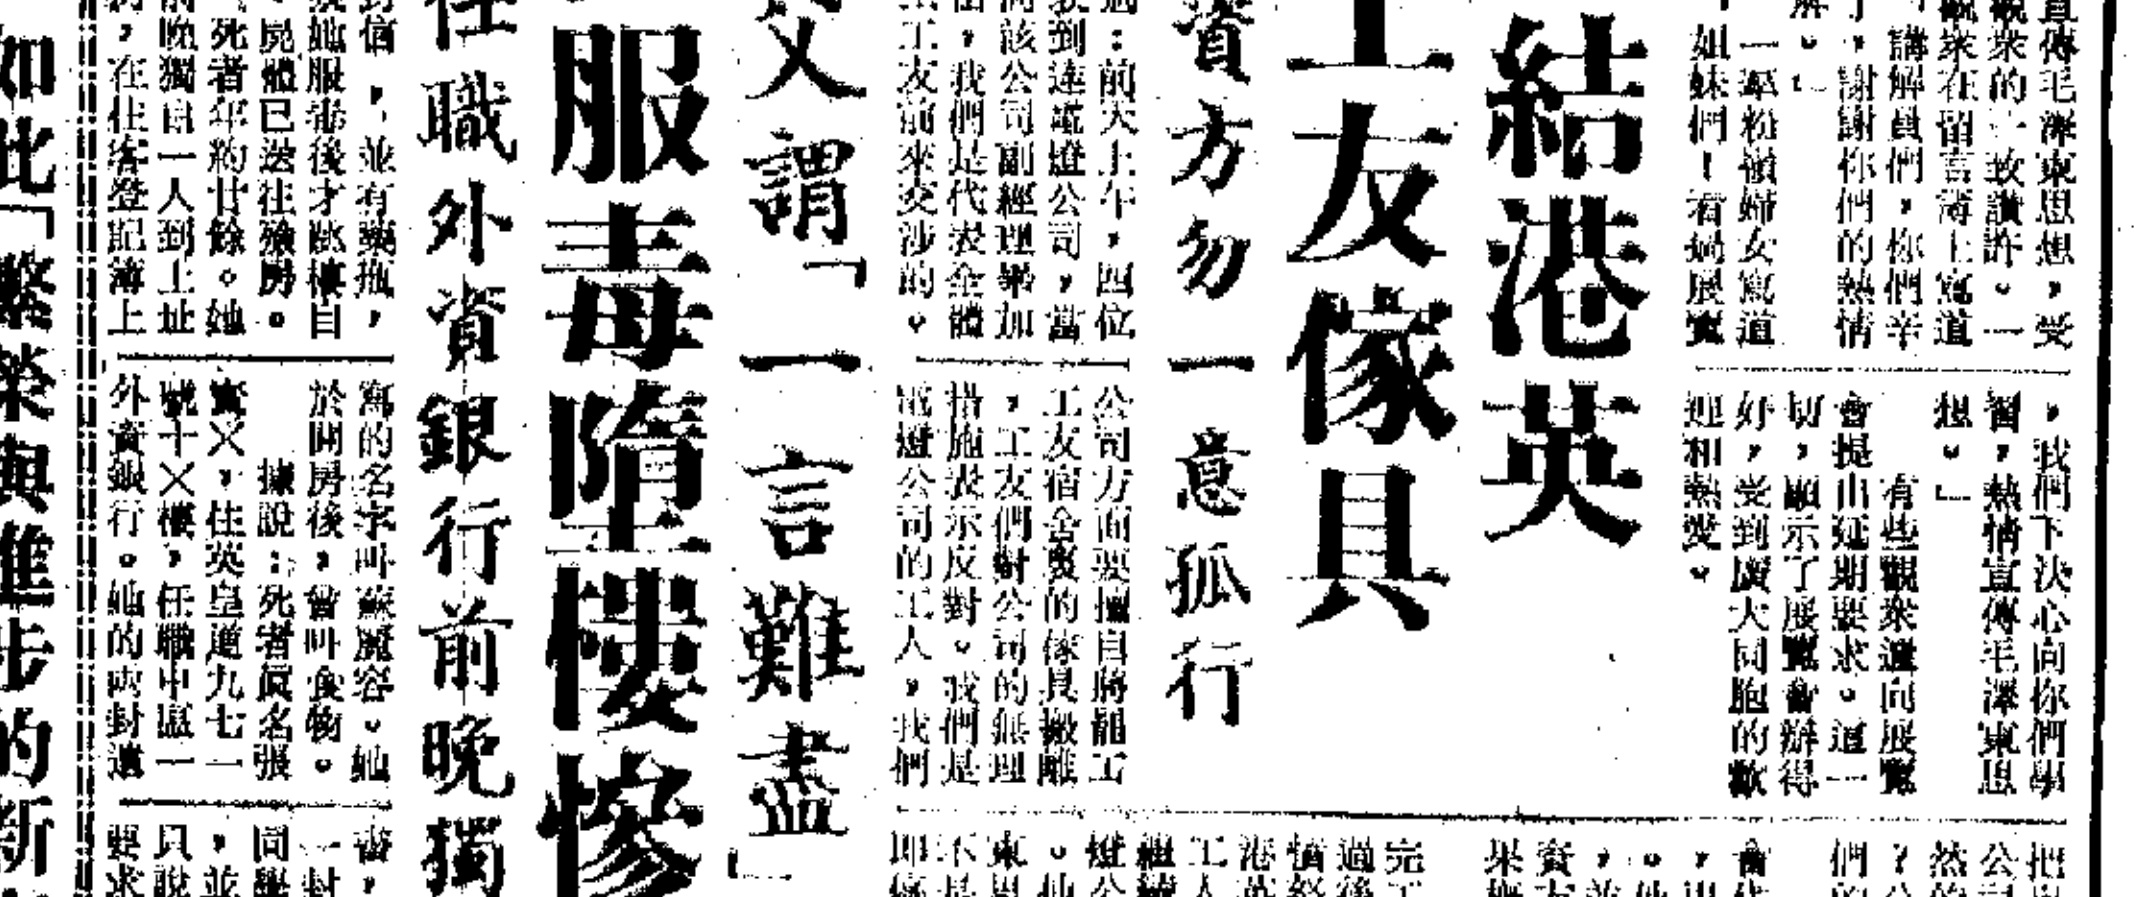 宣傳毛澤東思想，受
觀衆的一致讚許。一
觀衆在留言薄上寫道
「講解員們，你們辛
了，謝謝你們的熱情
解。」
一羣粉嶺婦女寫道
「姐妹們！看過展覽
，我們下決心向你們學
習，熱情宣傳毛澤東思
想。」
有些觀衆還向展覽
會提出延期要求。這一
切，顯示了展覽會辦得
好，受到廣大同胞的歡
迎和熱愛。
結港英
工友傢具
資方勿一意孤行
過：前天上午，四位
我到達電燈公司，當
向該公司副經理畢加
出，我們是代表全體
工友前來交涉的。
公司方面要擅自將罷工
工友宿舍裏的傢具搬離
，工友們對公司的無理
措施表示反對。我們是
電燈公司的工人，我們
又謂「一言難盡」
服毒墮樓慘
任職外資銀行前晚獨
封信，並有藥瓶，
疑她服毒後才跳樓自
。屍體已送往殮房。
死者年約廿餘。她
前晚獨自一人到上址
房，在住客登記薄上
寫的名字叫蘇魔容。她
於開房後，曾叫食物。
據說：死者真名張
寶×，住英皇道九七一
號十×樓，任職中區一
外資銀行。她的兩封遺
書，
一封
同學
，並
只說
要求
如此「繁榮與進步的新